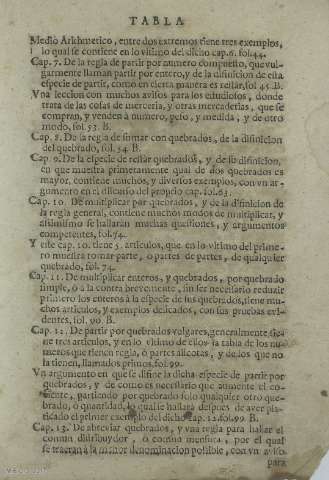 TABLA
Medio Arithmetico, entre dos extremos tiene tres exemplos,
lo qual se contiene en lo vltimo del dicho cap.6. fol.44.
Cap. 7. De la regla de partir por numero compuesto, que vul-
garmente llaman partir por entero, y de la difinicion de esta
especie de partir, como en cierta manera es restar, fol. 45. B.
Vna leccion con muchos avisos para los estudiosos, donde
trata de las cosas de merceria, y otras mercaderias, que se
compran, y venden à numero, peso, y medida, y de otro
modo, fol. 53. B.
Cap. 8. De la regla de sumar con quebrados, de la difinicion
del quebrado, fol. 54. B.
Cap. 9. De la especie de restar quebrados, y de su difinicion,
en que muestra primeramente qual de dos quebrados es
mayor, contiene muchos, y diversos exemplos, con vn ar-
gumento en el discurso del propio cap. fol.63.
Cap. 10. De multiplicar por quebrados, y de la difinicion de
la regla general, contiene muchos modos de multiplicar, y
assimismo se hallaràn muchas questiones, y argumentos
competentes, fol.74.
Y este cap. 10. tiene 5. articulos, que en lo vltimo del prime-
ro muestra tomar parte, ò partes de partes, de qualquier
quebrado, fol. 74.
Cap. 11. De multiplicar enteros, y quebrados, por quebrado
simple, ò a la contra brevemente, sin ser necessario reduzir
primero los enteros à la especie de sus quebrados, tiene mu-
chos articulos, y exemplos delicados, con sus pruebas evi-
dentes, fol. 96. B.
Cap. 12. De partir por quebrados vulgares, generalmente tie-
ne tres articulos, y en lo vltimo de ellos la tabla de los nu-
meros que tienen regla, ò partes alicotas, y de los que no
la tienen, llamados primos, fol.99.
Vn argumento en que se difine la dicha especie de partir por
quebrados, y de como es necessario que aumente el co-
ciente, partiendo por quebrado solo qualquier otro que-
brado, ò quantidad, lo qual se hallarà despues de aver pla-
ticado el primer exemplo del dicho cap. 12. fol.99. B.
Cap. 13. De abreviar quebrados, y vna regla para hallar el
comun distribuydor, ò comun mensura, por el qual
se traeràn à la menor denominacion possible, con vn aviso
para